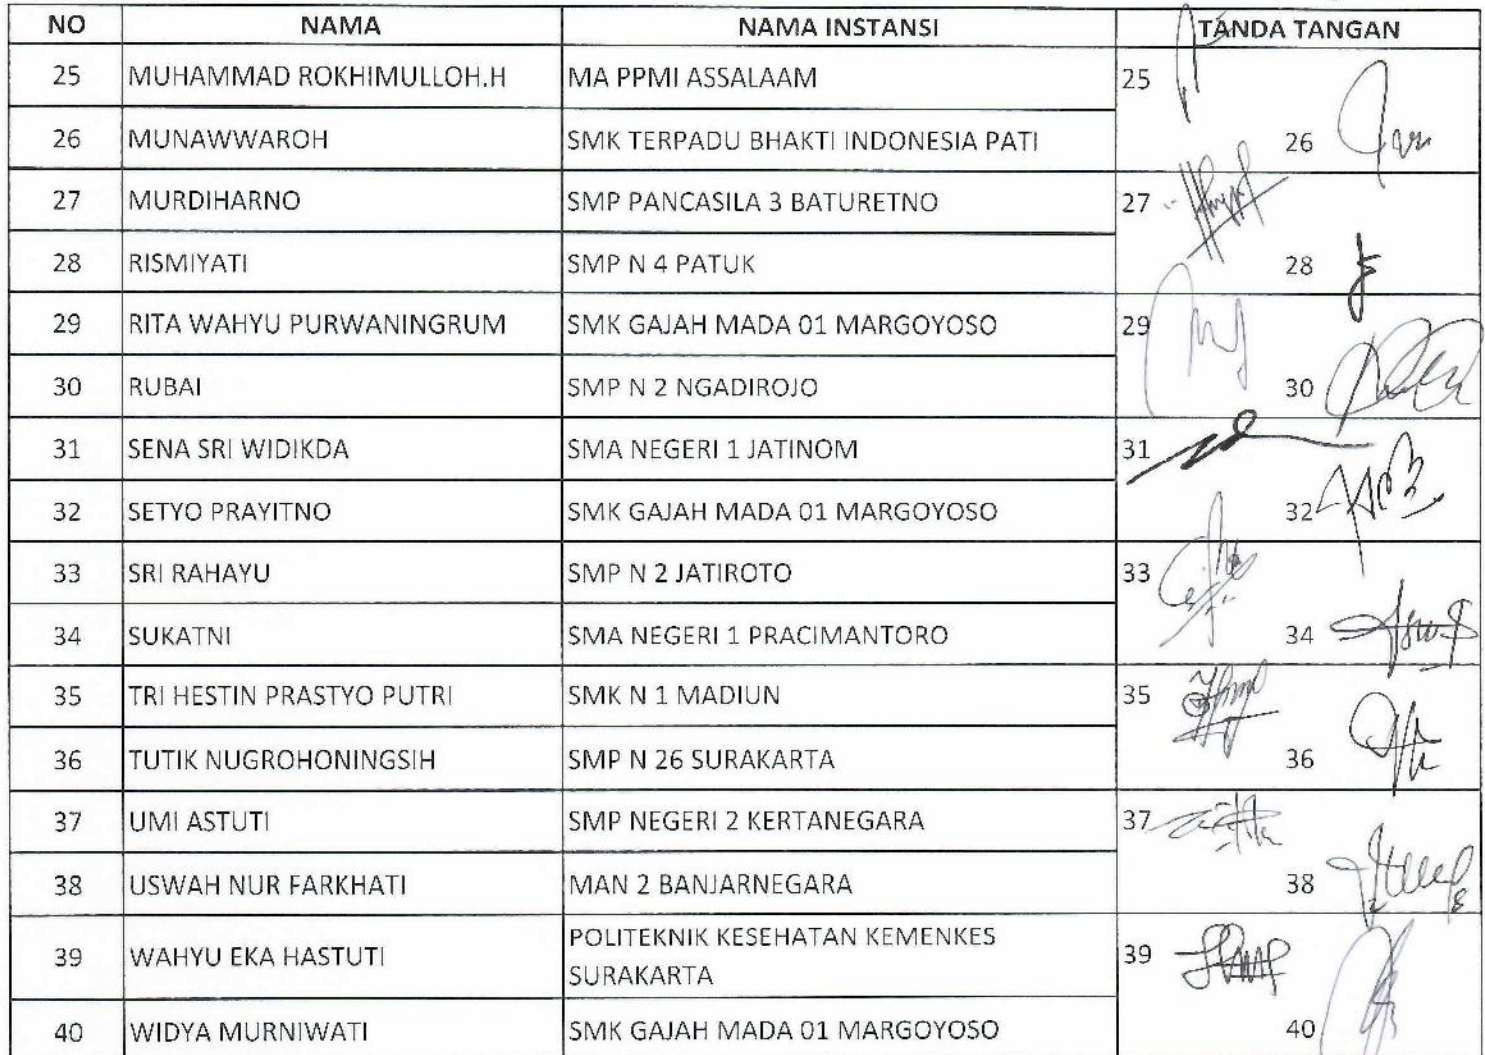 NO NAMA NAMA INSTANSI TANDA TANGAN
25 MUHAMMAD ROKHIMULLOH.H MA PPMI ASSALAAM 25
26 MUNAWWAROH SMK TERPADU BHAKTI INDONESIA PATI 26
27 MURDIHARNO SMP PANCASILA 3 BATURETNO 27
28 RISMIYATI SMP N 4 PATUK 28
29 RITA WAHYU PURWANINGRUM SMK GAJAH MADA 01 MARGOYOSO 29
30 RUBAI SMP N 2 NGADIROJO 30
31 SENA SRI WIDIKDA SMA NEGERI 1 JATINOM 31
32 SETYO PRAYITNO SMK GAJAH MADA 01 MARGOYOSO 32
33 SRI RAHAYU SMP N 2 JATIROTO 33
34 SUKATNI SMA NEGERI 1 PRACIMANTORO 34
35 TRI HESTIN PRASTYO PUTRI SMK N 1 MADIUN 35
36 TUTIK NUGROHONINGSIH SMP N 26 SURAKARTA 36
37 UMI ASTUTI SMP NEGERI 2 KERTANEGARA 37
38 USWAH NUR FARKHATI MAN 2 BANJARNEGARA 38
39 WAHYU EKA HASTUTI POLITEKNIK KESEHATAN KEMENKES
SURAKARTA 39
40 WIDYA MURNIWATI SMK GAJAH MADA 01 MARGOYOSO 40